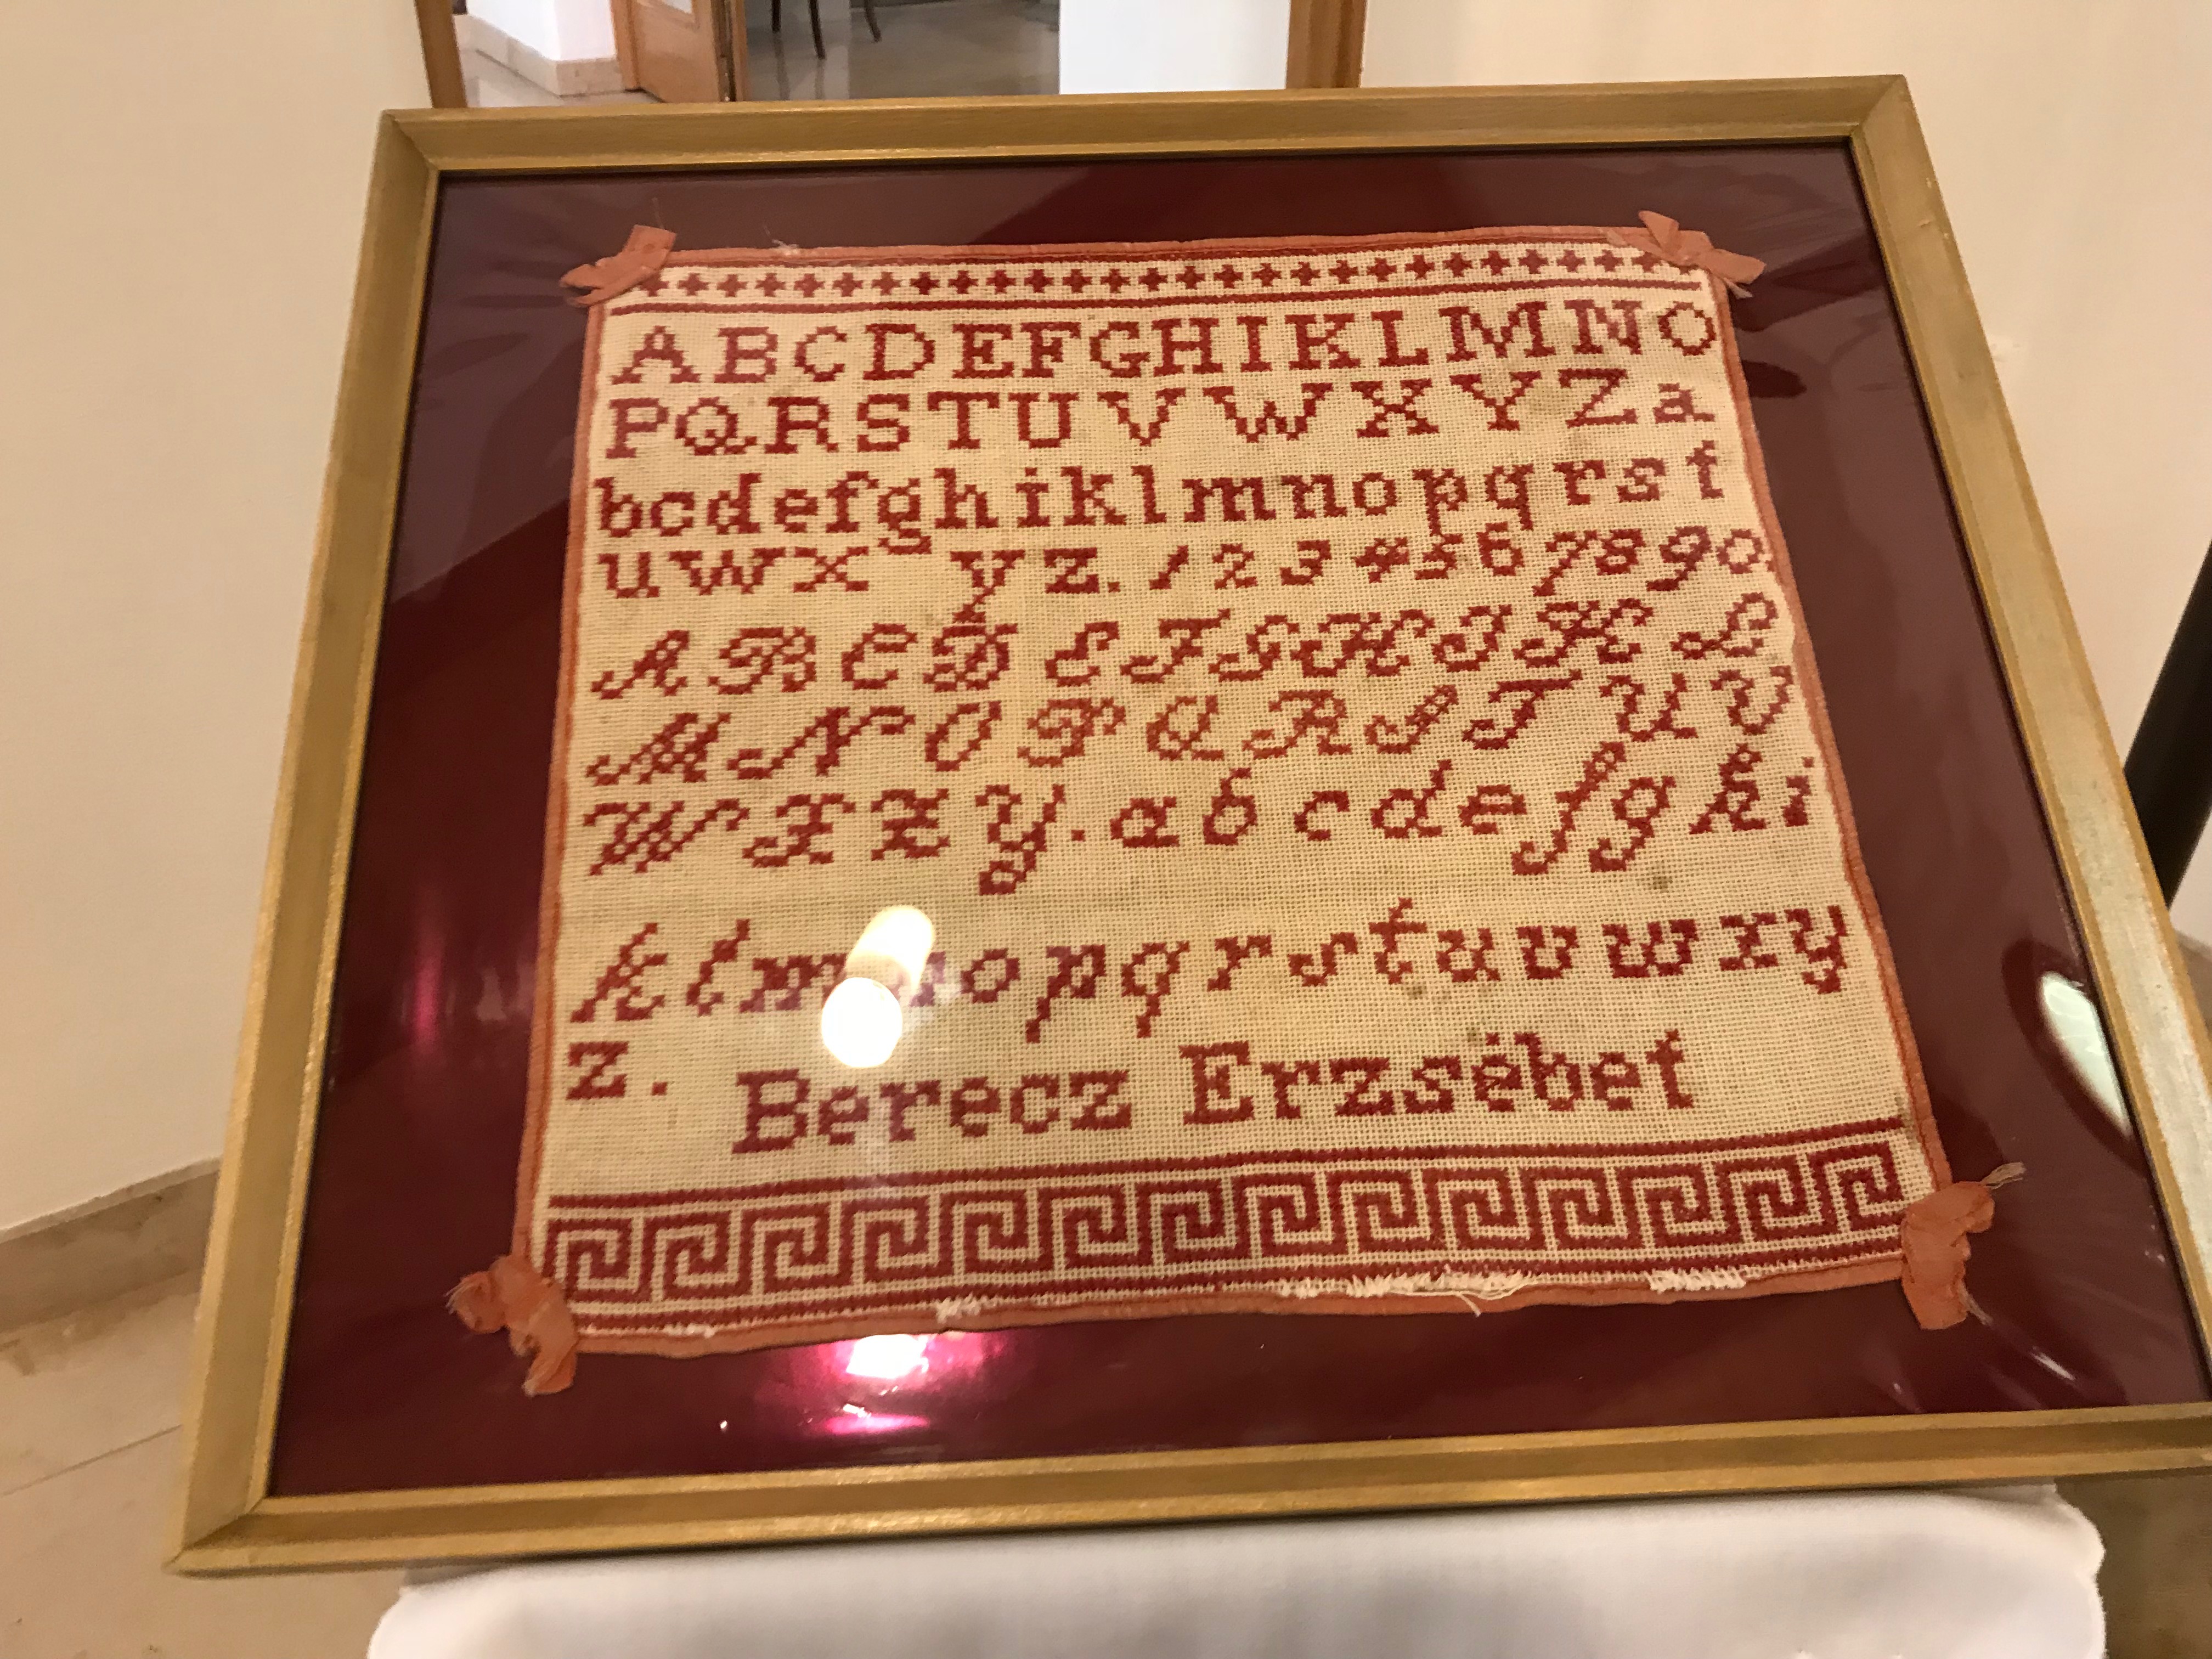 ABCDEFGHIKLMNO
PQRSTUVWXYZa
bcdefghiklmnopqrst
uwxyz. 1234567890
ABCDEFGHIKL
MNOPQRSTUV
WXZY.abcdefghi
klmnopqrstuvwxy
z. Berecz Erzsébet